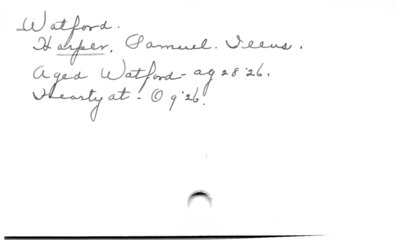 Watford.
Harper, Samuel.
Aged Watford - ag 28 '26.
Hearty at - O 9 '26.